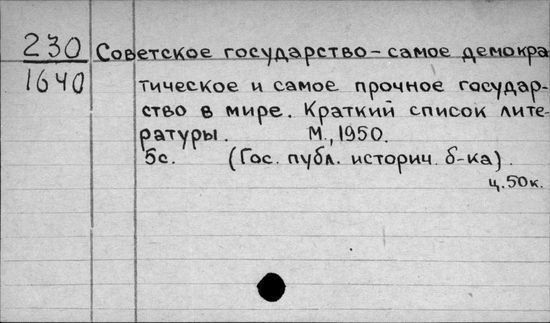 230 Советское государство - самое демокра
1640 тическое и самое прочное государ-
ство в мире. Краткий список лите-
ратуры. М., 1950.
5с. (Гос. публ. историч. б-ка).
ц. 50к.